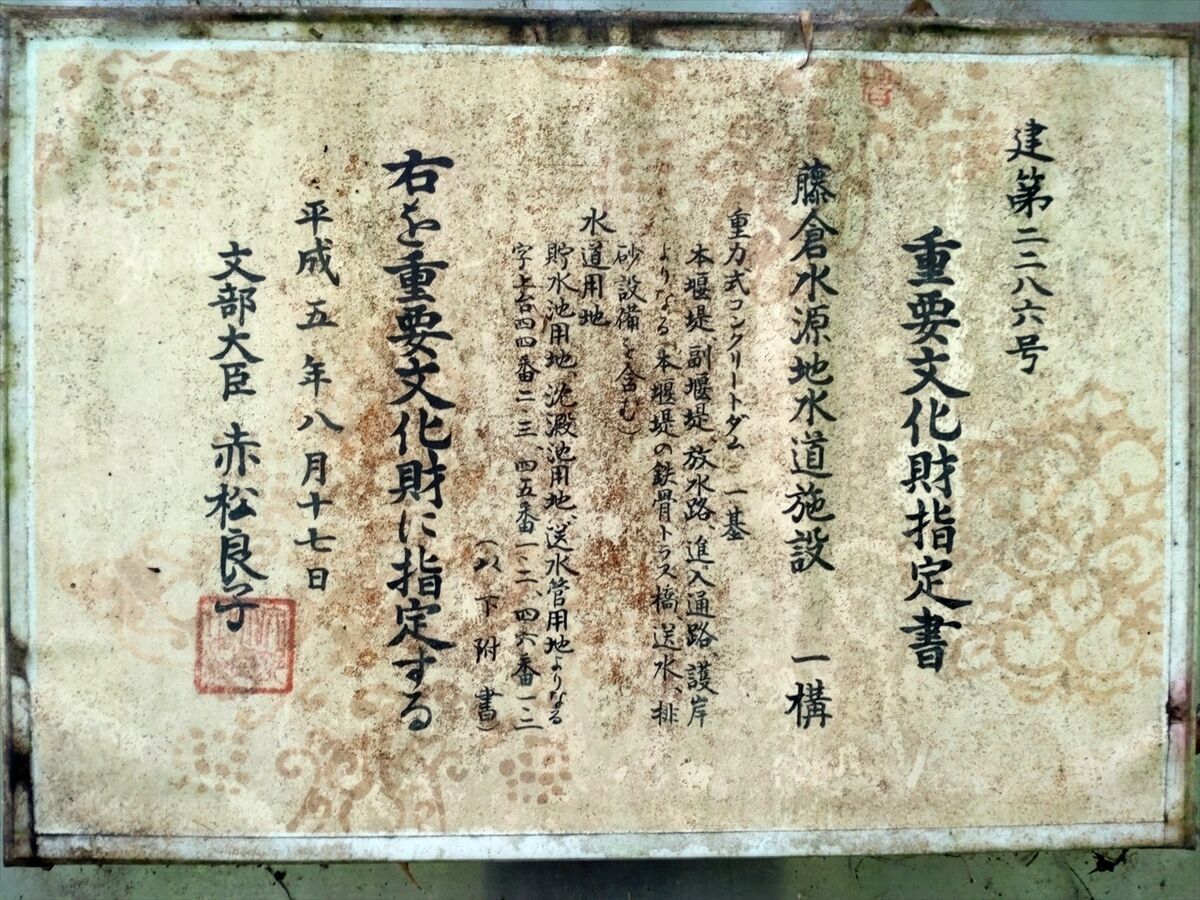 建第二二八六号
重要文化財指定書
藤倉水源地水道施設　一構
重力式コンクリートダム　一基
本堰堤、副堰堤、放水路、進入通路、護岸
よりなる　本堰堤の鉄骨トラス橋、送水、排
砂設備を含む)
水道用地
貯水池用地、沈澱池用地、送水管用地よりなる
字上台四四番二・三　四五番一・二　四六番一・二
(以下附書)
右を重要文化財に指定する
平成五年八月十七日
文部大臣　赤松良子